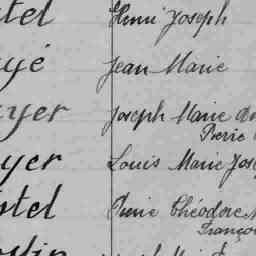 tel Henri Joseph
yé Jean Marie
yer Joseph Marie
Pierre
yer Louis Marie Jos
tel Pierre Théodore
Franço